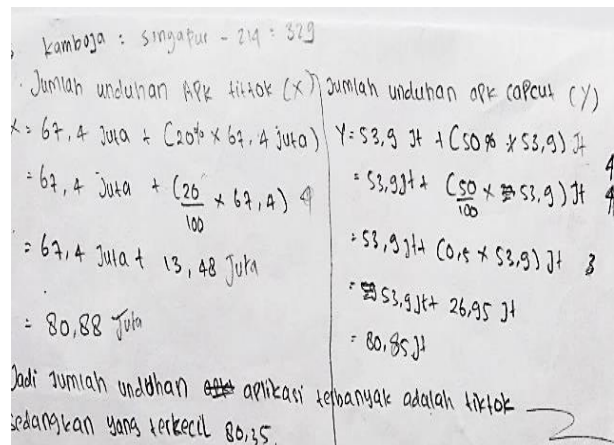 kamboja : singapur - 214 = 329
Jumlah unduhan APK tiktok (X)
X = 67,4 juta + (20% × 67,4 juta)
= 67,4 juta + (20/100 × 67,4) 4
= 67,4 juta + 13,48 juta
= 80,88 juta
Jumlah unduhan apk capcut (Y)
Y = 53,9 Jt + (50% × 53,9) Jt
4
= 53,9 Jt + (50/100 × 53,9) Jt 4
= 53,9 Jt + (0,5 × 53,9) Jt 3
= 53,9 Jt + 26,95 Jt
= 80,85 Jt
Jadi Jumlah undohan aplikasi terbanyak adalah tiktok
sedangkan yang terkecil 80,35
2